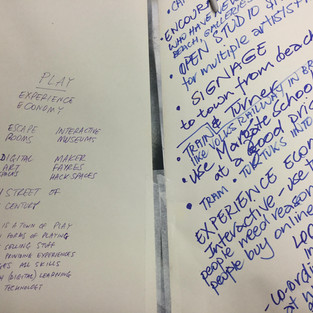 PLAY
EXPERIENCE
ECONOMY
ESCAPE INTERACTIVE
ROOMS MUSEUMS
DIGITAL MAKER
ART FAYRES
SPACES HACKSPACES
STREET OF
CENTURY
IS A TOWN OF PLAY
FORMS OF PLAYING
SELLING STUFF
PROVIDING EXPERIENCES
ALL SKILLS
(DIGITAL) LEARNING
TECHNOLOGY
• ENCOUR
WHO HAVE
BEACH, GALLERIES
• OPEN STUDIO
for multiple artists
• SIGNAGE
to town from beach
• TRAIN Turner
like VOLKS RAILWAY IN BR
• use Margate School
at a good pric
• TRAM TUKTUKS INTO
• EXPERIENCE ECONO
Interactive - use t
people need reason
people buy online
LOC
co-ordin
at